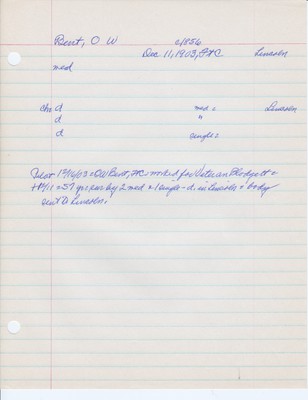 Bent, O W c/1856
Dec 11, 1903, FtC Lincoln
med
cha d med = Lincoln
d "
d single =
12/16/03 = OW Bent, FtC worked for Veteran Blodgett =
12/11 = 57 yrs sur by 2 med = 1 single - d. in Lincoln = body
sent to Lincoln.